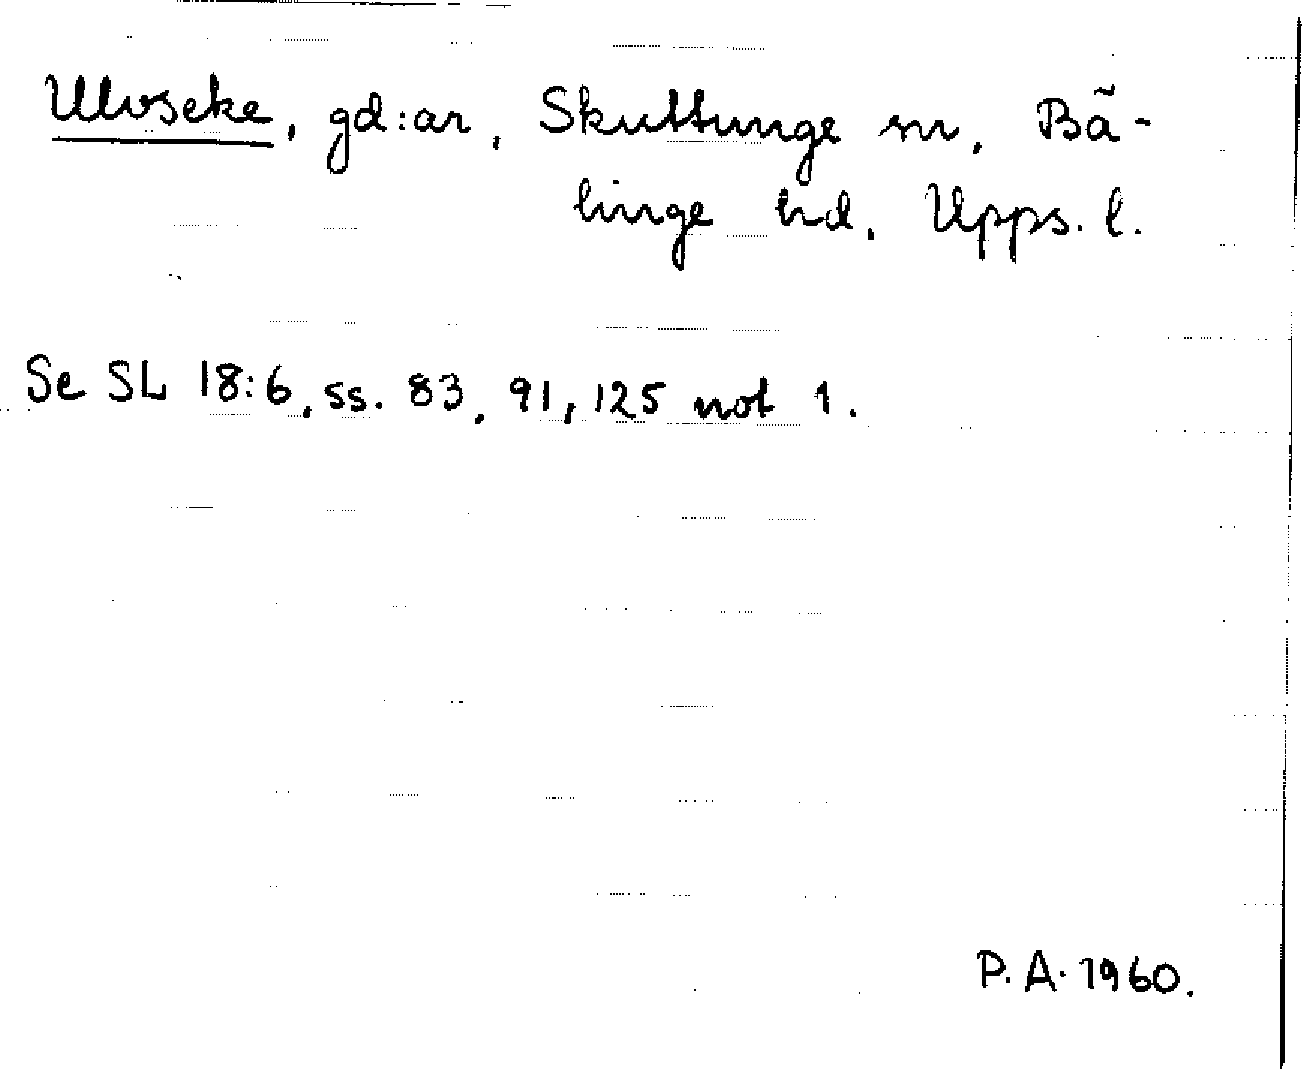 Ulvseke, gd:ar, Skuttunge sn, Bä-
linge hd, Upps. l.
Se SL 18:6, ss. 83, 91, 125 not 1.
P. A. 1960.